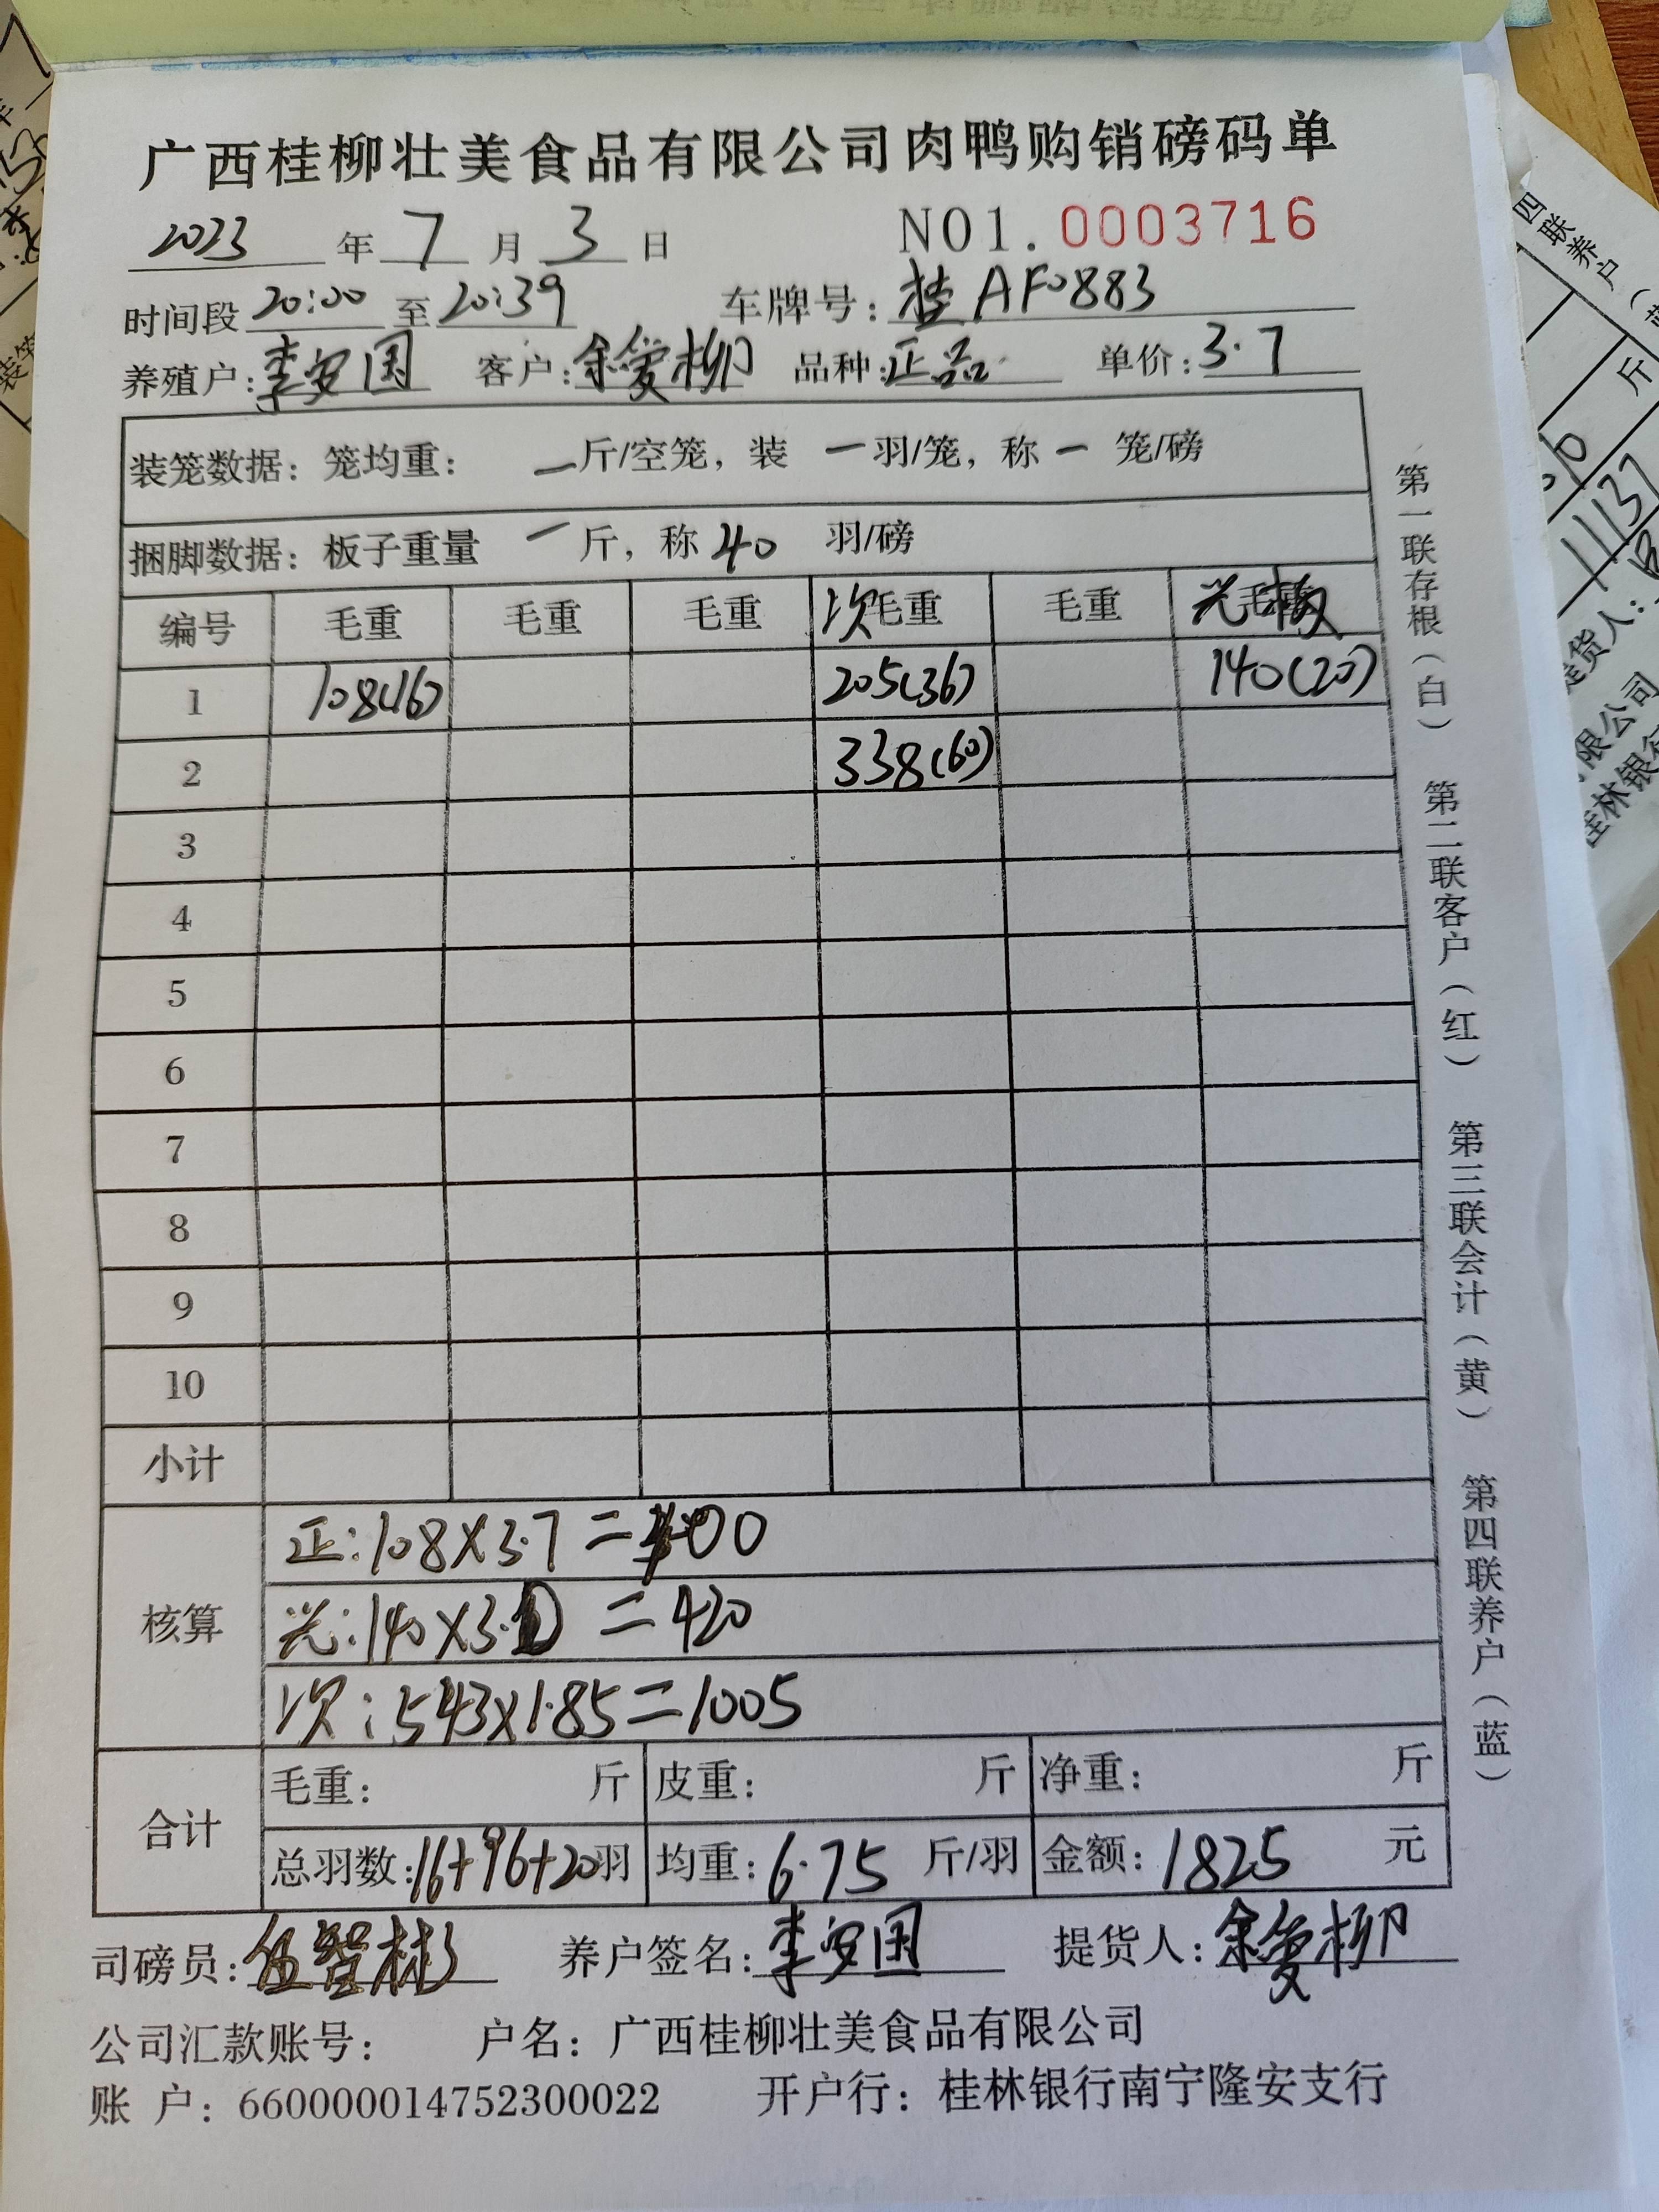 广西桂柳壮美食品有限公司肉鸭购销磅码单
2023 年 7 月 3 日 NO1. 0003716
时间段 20:00 至 20:39 车牌号: 桂AF0883
养殖户: 李安国 客户: 余爱柳 品种: 正品 单价: 3.7
装笼数据: 笼均重: 一斤/空笼, 装 一羽/笼, 称 一 笼/磅
捆脚数据: 板子重量 一 斤, 称 40 羽/磅
编号 毛重 毛重 毛重 次毛重 毛重 毛重
1 108(16) 205(36) 140(20)
2 338(60)
3
4
5
6
7
8
9
10
小计
核算
正: 108X3.7=400
光: 140X3.0=420
次: 543X1.85=1005
合计
毛重: 斤 皮重: 斤 净重: 斤
总羽数: 16+96+20羽 均重: 6.75 斤/羽 金额: 1825 元
司磅员: 伍智彬 养户签名: 李安国 提货人: 余爱柳
公司汇款账号: 户名: 广西桂柳壮美食品有限公司
账 户: 660000014752300022 开户行: 桂林银行南宁隆安支行
第一联存根(白) 第二联客户(红) 第三联会计(黄) 第四联养户(蓝)
四联养户(
斤
11137
提货人:
限公司
桂林银行